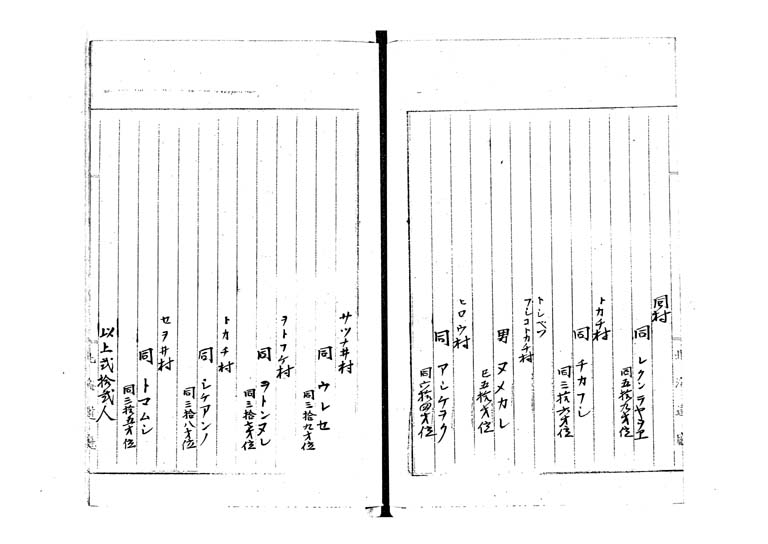 同村
同 レクンラヤヲヱ
同五拾九才位
トカチ村
同 チカフシ
同三拾六才位
トシベツ
フシコトカチ村
男 ヌメカレ
巳五拾才位
ヒロウ村
同 アシケヲク
同六拾四才位
サツナ井村
同 ウレセ
同三拾九才位
ヲトフケ村
同 ヲトンヌレ
同三拾七才位
トカチ村
同 シケアンノ
同三拾八才位
セヲ井村
同 トマムシ
同三拾五才位
以上弐拾弐人
北海道